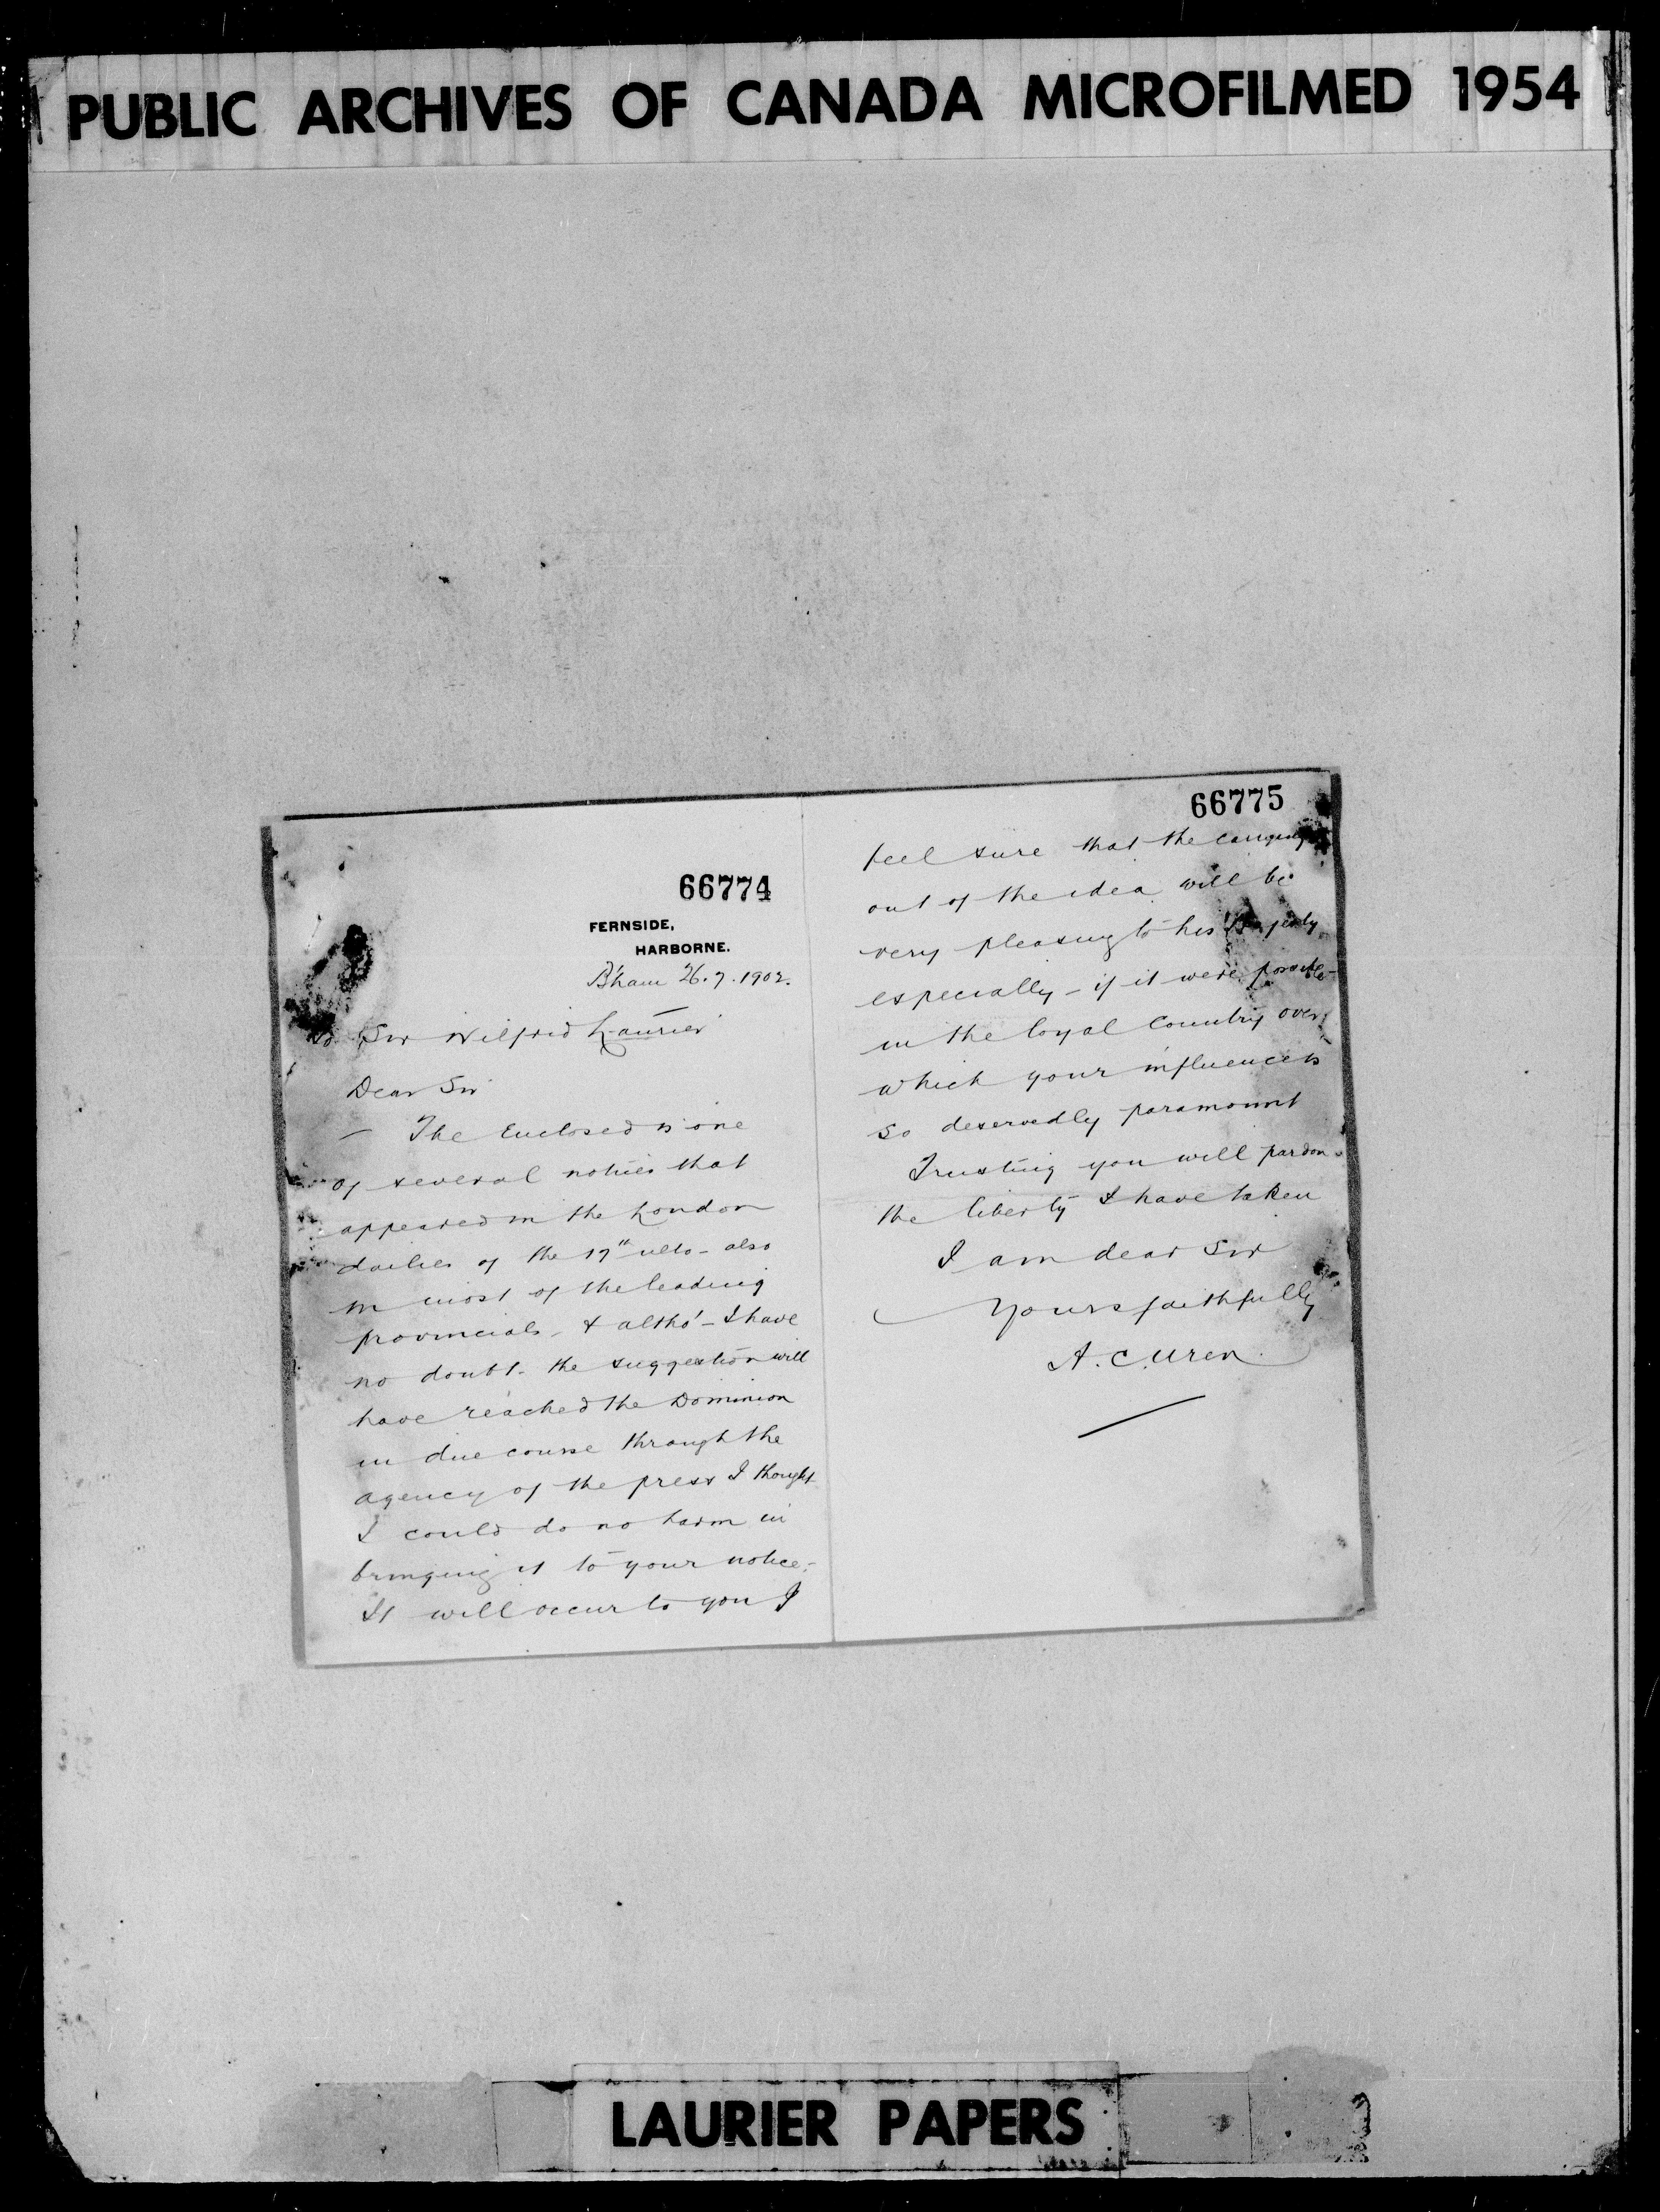 PUBLIC ARCHIVES OF CANADA MICROFILMED 1954
66774
FERNSIDE,
HARBORNE.
B'ham 26.7.1902.
To Sir Wilfrid Laurier
Dear Sir
The Enclosed is one
of several notices that
appeared in the London
dailies of the 17th ulto - also
in most of the leading
provincials - & altho' - I have
no doubt - the suggestion will
have reached the Dominion
in due course through the
agency of the press I thought
I could do no harm in
bringing it to your notice -
It will occur to you I
66775
feel sure that the carrying
out of the idea will be
very pleasing to his Majesty
especially - if it were possible -
in the loyal Country over
which your influence is
so deservedly paramount
Trusting you will pardon
the liberty I have taken
I am dear Sir
Yours faithfully
A. C. Uren.
LAURIER PAPERS